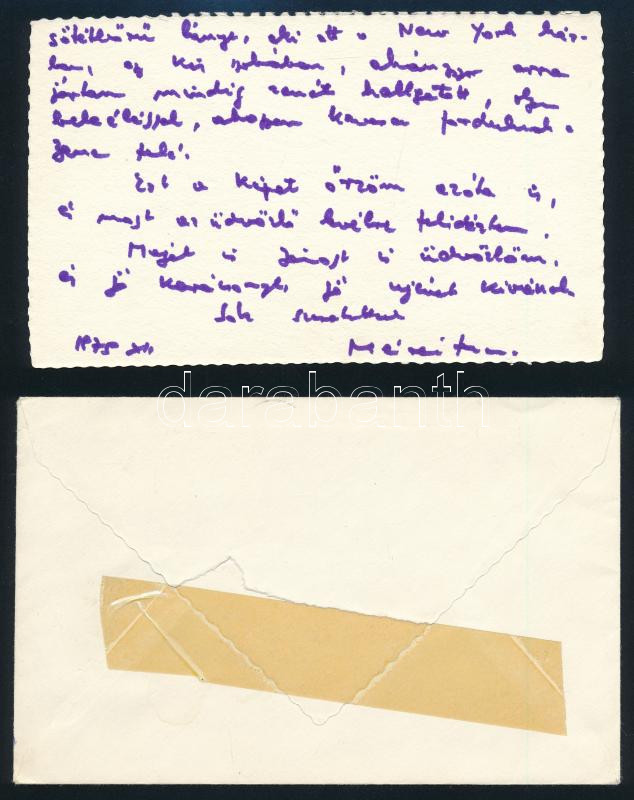 sötétbőrű lányt, aki ott a New York ház-
ban, egy kis szobában, ahányszor arra
jártam mindig zenét hallgatott, olyan
beleéléssel, ahogyan kevesen fordulnak a
Zene felé.
Ezt a képet őrzöm azóta is,
és most az üdvözlő levélre felidéztem.
is Jánost is üdvözlöm,
és jó karácsonyt, jó újévet kívánok
Sok szeretettel
1975 XII.
darabanth